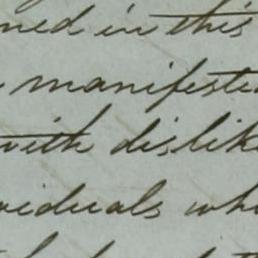 ned in this
manifeste
with dislike
viduals who